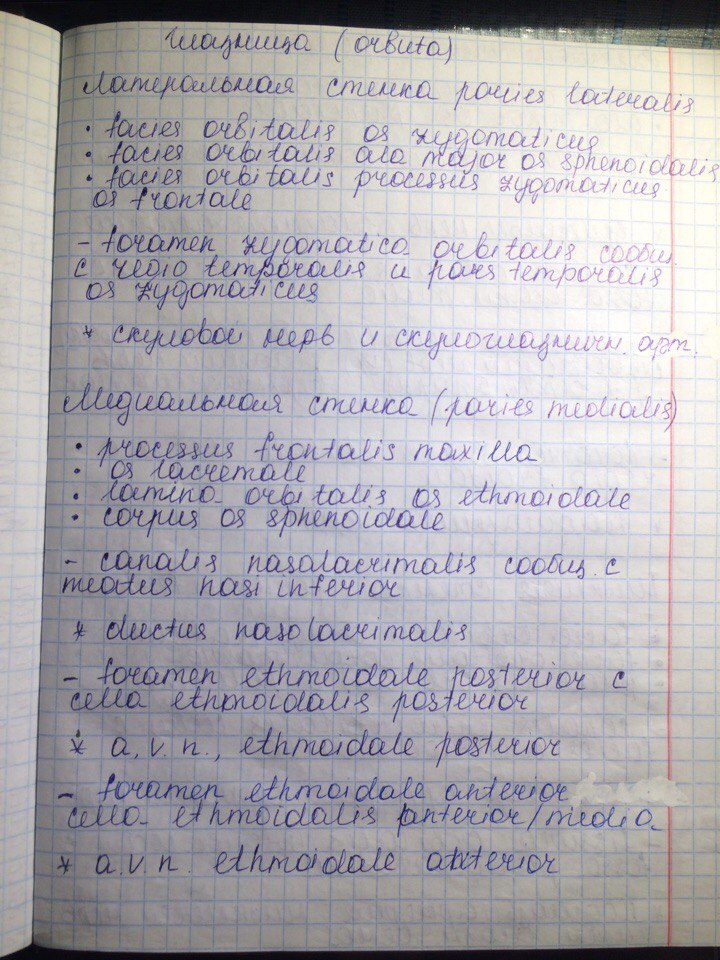 Глазница (orbita)
Латеральная стенка paries lateralis
• facies orbitalis os zygomaticus
• facies orbitalis ala major os sphenoidalis
• facies orbitalis processus zygomaticus
os frontale
- foramen zygomatico orbitalis сообщ
с regio temporalis и pars temporalis
os zygomaticus
* скуловой нерв и скулоглазничн. арт.
Медиальная стенка (paries medialis)
• processus frontalis maxilla
• os lacremale
• lamina orbitalis os ethmoidale
• corpus os sphenoidale
- canalis nasolacrimalis сообщ. с
meatus nasi inferior
* ductus nasolacrimalis
- foramen ethmoidale posterior с
cella ethmoidalis posterior
* a, v. n., ethmoidale posterior
- foramen ethmoidale anterior
cella ethmoidalis anterior/media
* a.v.n. ethmoidale anterior